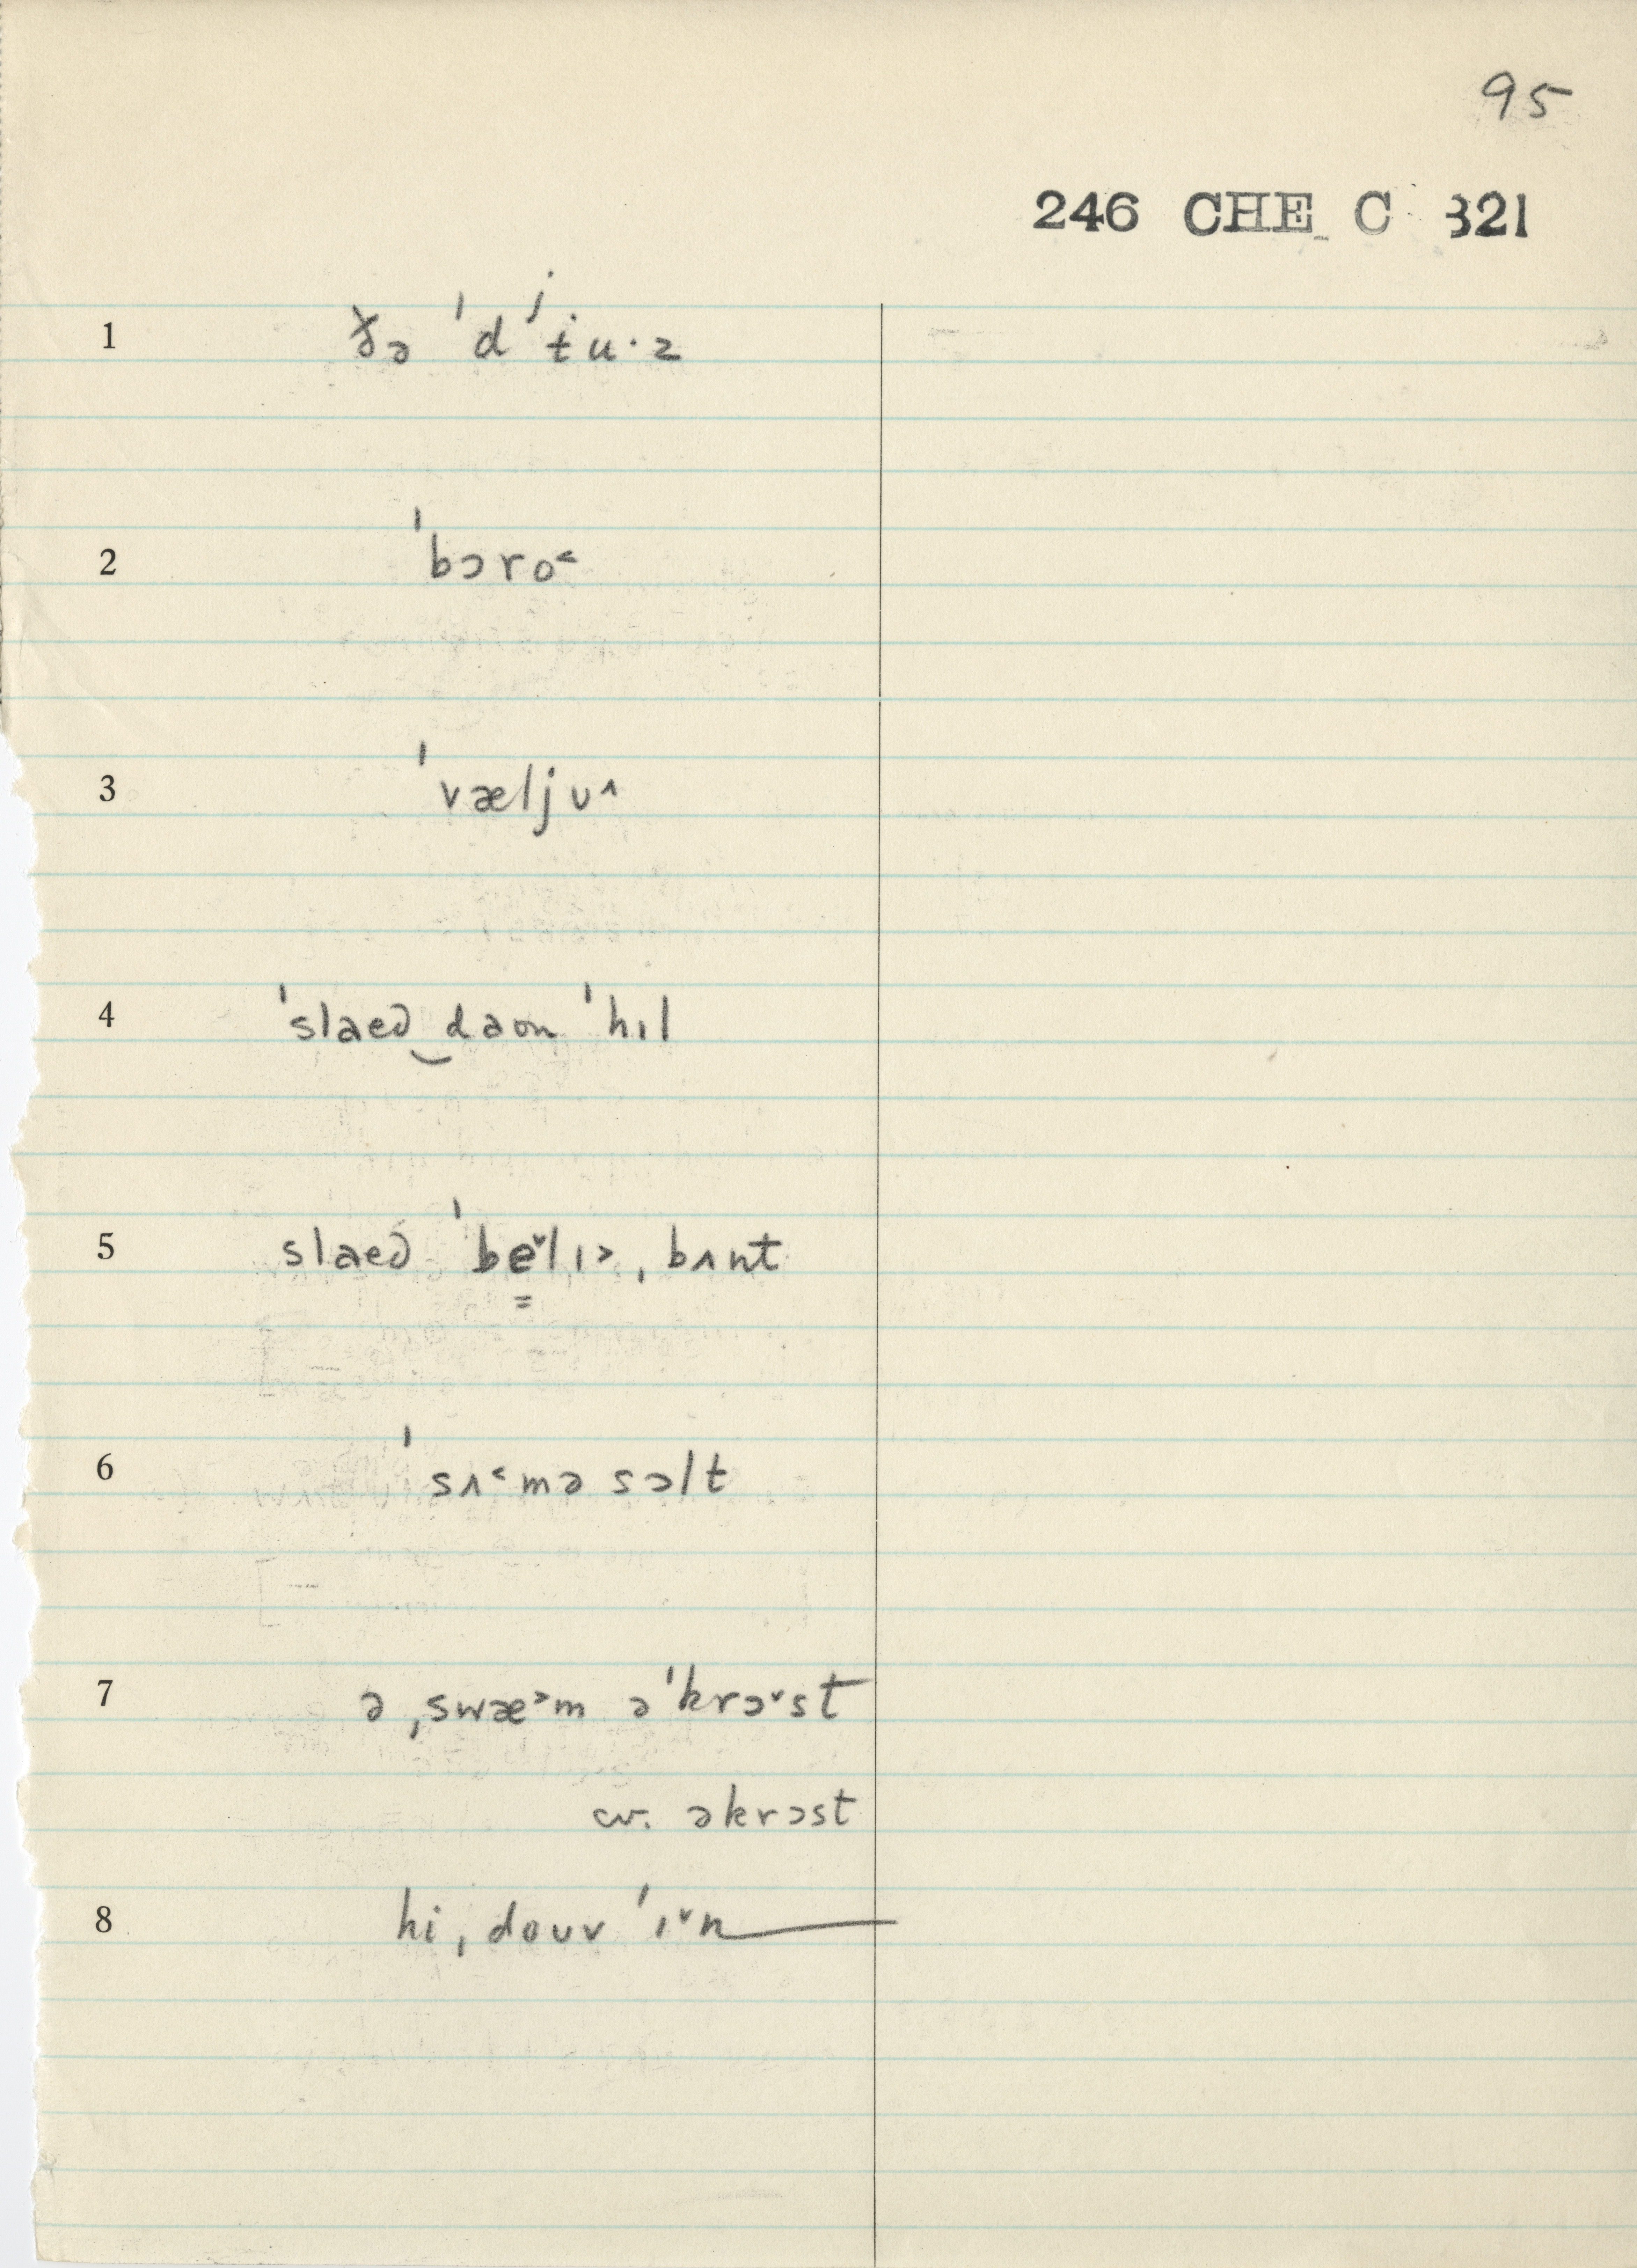 95
246 CHE C 321
1 ðə ˈdʲɨu·z
2 ˈbɔro˂
3 ˈvæljʊ˄
4 ˈslaed‿daʊn ˈhɪl
5 slaed ˈbe̳˅lɪ˃ ˌbʌnt
6 ˈsʌ˂mə sɔlt
7 ə ˌswæ˃m əˈkrɔ˅st
cv. əkrɔst
8 hi ˌdoʊv ˈɪ˅n